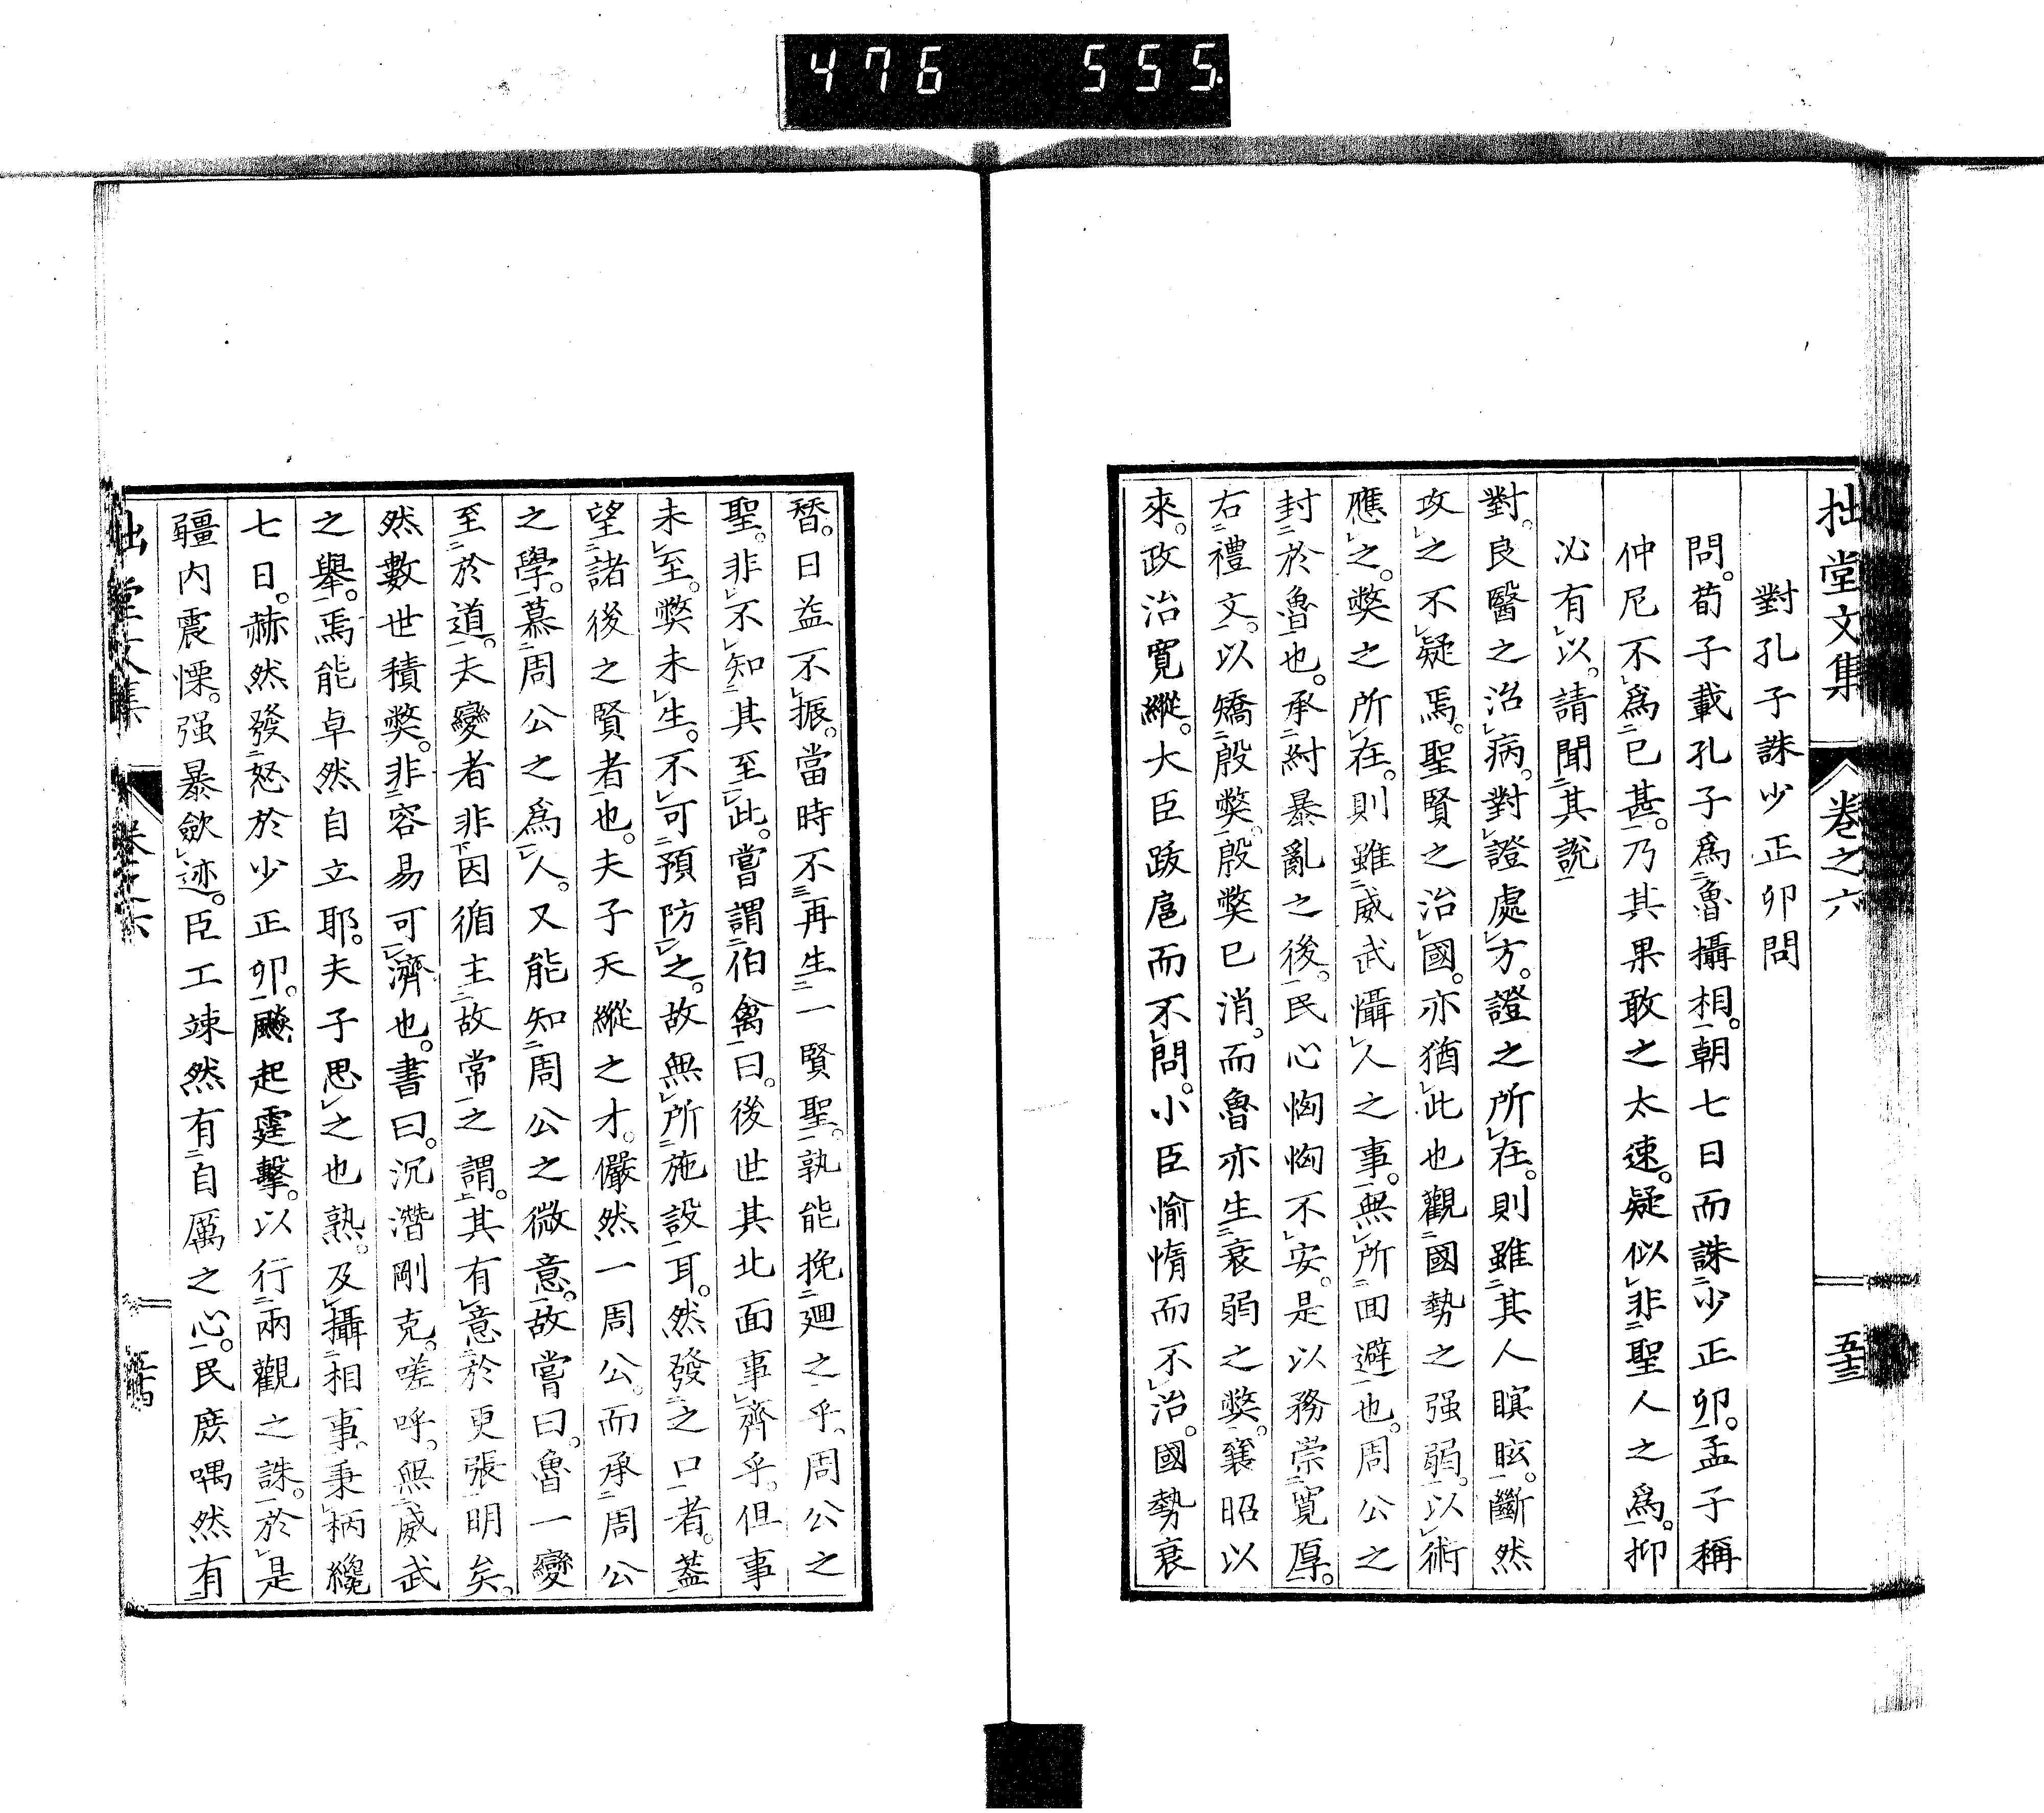 476 555
拙堂文集 卷之六 五十三
對孔子誅少正卯問
問。荀子載孔子爲魯攝相。朝七日而誅少正卯。孟子稱
仲尼不爲已甚。乃其果敢之太速。疑似非聖人之爲。抑
必有以。請聞其說
對。良醫之治病。對證處方。證之所在。則雖其人瞑眩。斷然
攻之不疑焉。聖賢之治國。亦猶此也觀國勢之强弱。以術
應之。弊之所在。則雖威武懾人之事。無所回避也。周公之
封於魯也。承紂暴亂之後。民心恟恟不安。是以務崇寬厚。
右禮文。以矯殷弊。殷弊已消。而魯亦生衰弱之弊。襄昭以
來。政治寬縱。大臣跋扈而不問。小臣愉惰而不治。國勢衰
替。日益不振。當時不再生一賢聖。孰能挽廻之乎。周公之
聖。非不知其至此。嘗謂伯禽曰。後世其北面事齊乎。但事
未至。弊未生。不可預防之。故無所施設耳。然發之口者。蓋
望諸後之賢者也。夫子天縱之才。儼然一周公。而承周公
之學。慕周公之爲人。又能知周公之微意。故嘗曰。魯一變
至於道。夫變者非因循主故常之謂。其有意於更張明矣。
然數世積弊。非容易可濟也。書曰。沉潛剛克。嗟呼。無威武
之舉。焉能卓然自立耶。夫子思之也熟。及攝相事、秉柄纔
七日。赫然發怒於少正卯。飇起霆擊。以行兩觀之誅。於是
疆内震慄。强暴歛迹。臣工竦然有自厲之心。民庶喁然有
拙堂文集 卷之六